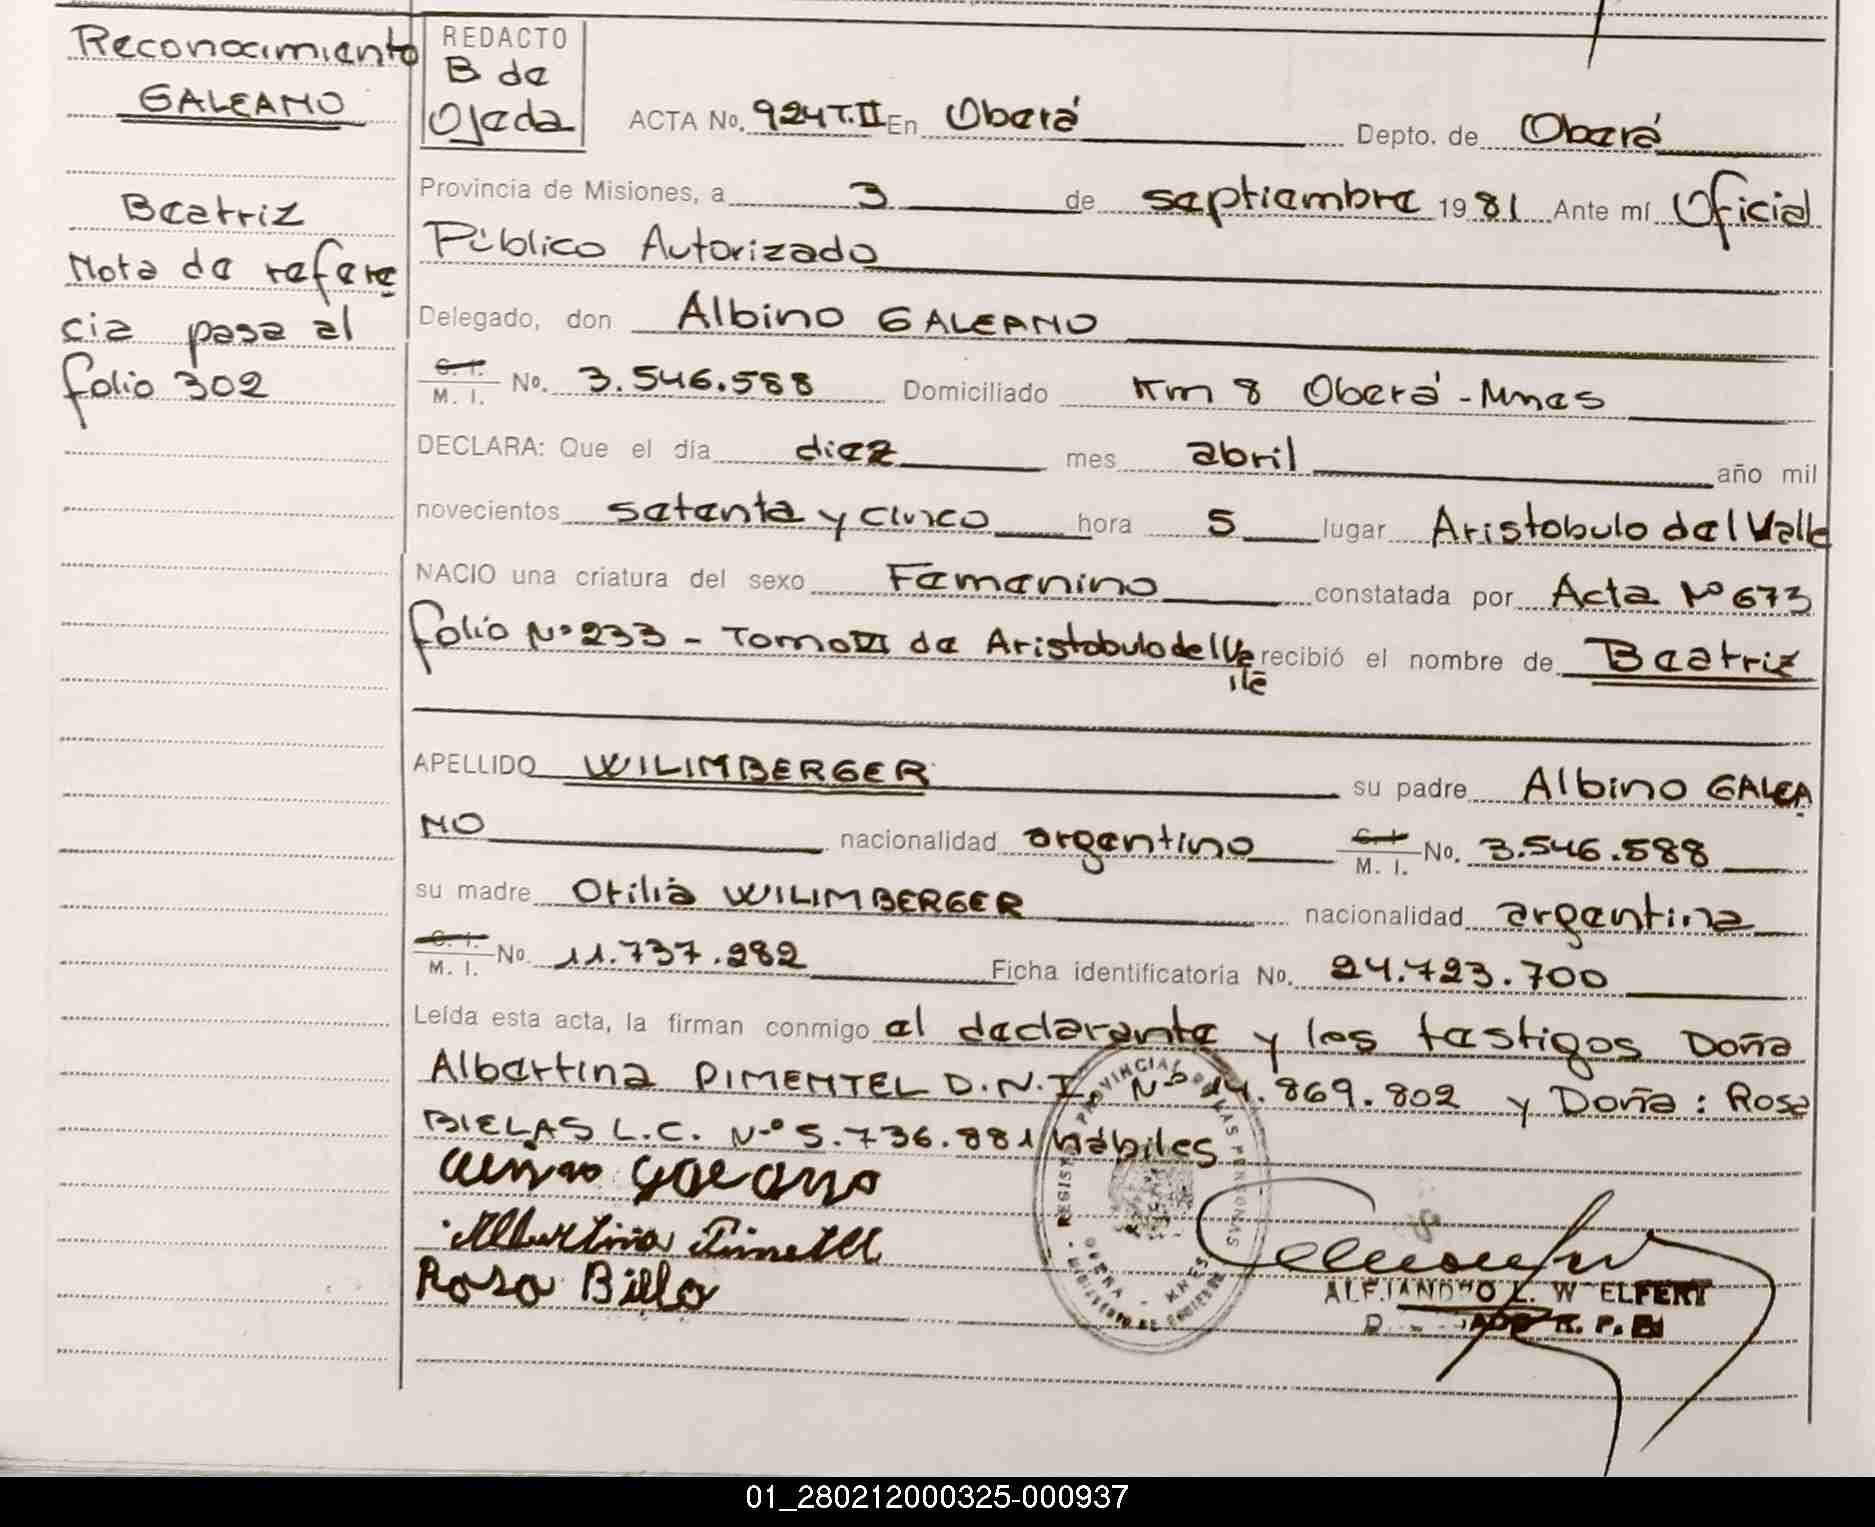 Reconocimiento
GALEANO
Beatriz
Nota de refere
cia pasa al
folio 302
REDACTO
B de
Ojeda
ACTA No. 924 T.II En Oberá Depto. de Oberá
Provincia de Misiones, a 3 de septiembre 1981 Ante mí Oficial
Público Autorizado
Delegado, don Albino GALEANO
C. I.
M. I. No. 3.546.588 Domiciliado Km 8 Oberá - Mnes
DECLARA: Que el día diez mes abril año mil
novecientos setenta y cinco hora 5 lugar Aristobulo del Valle
NACIO una criatura del sexo Femenino constatada por Acta Nº 673
folio Nº 233 - Tomo VI de Aristobulo del Va recibió el nombre de Beatriz
lle
APELLIDO WILIMBERGER su padre Albino GALEA
NO nacionalidad argentino C. I. M. I. No. 3.546.588
su madre Otilia WILIMBERGER nacionalidad argentina
C. I.
M. I. No. 11.737.282 Ficha identificatoria No. 24.723.700
Leída esta acta, la firman conmigo el declarante y los testigos Doña
Albertina PIMENTEL D.N.I. Nº 14.869.802 y Doña: Rosa
BIELAS L.C. Nº 5.736.881 hábiles
REGISTRO PROVINCIAL DE LAS PERSONAS
OBERA - MNES
Rosa
ALEJANDRO L. WELFERT
01_280212000325-000937